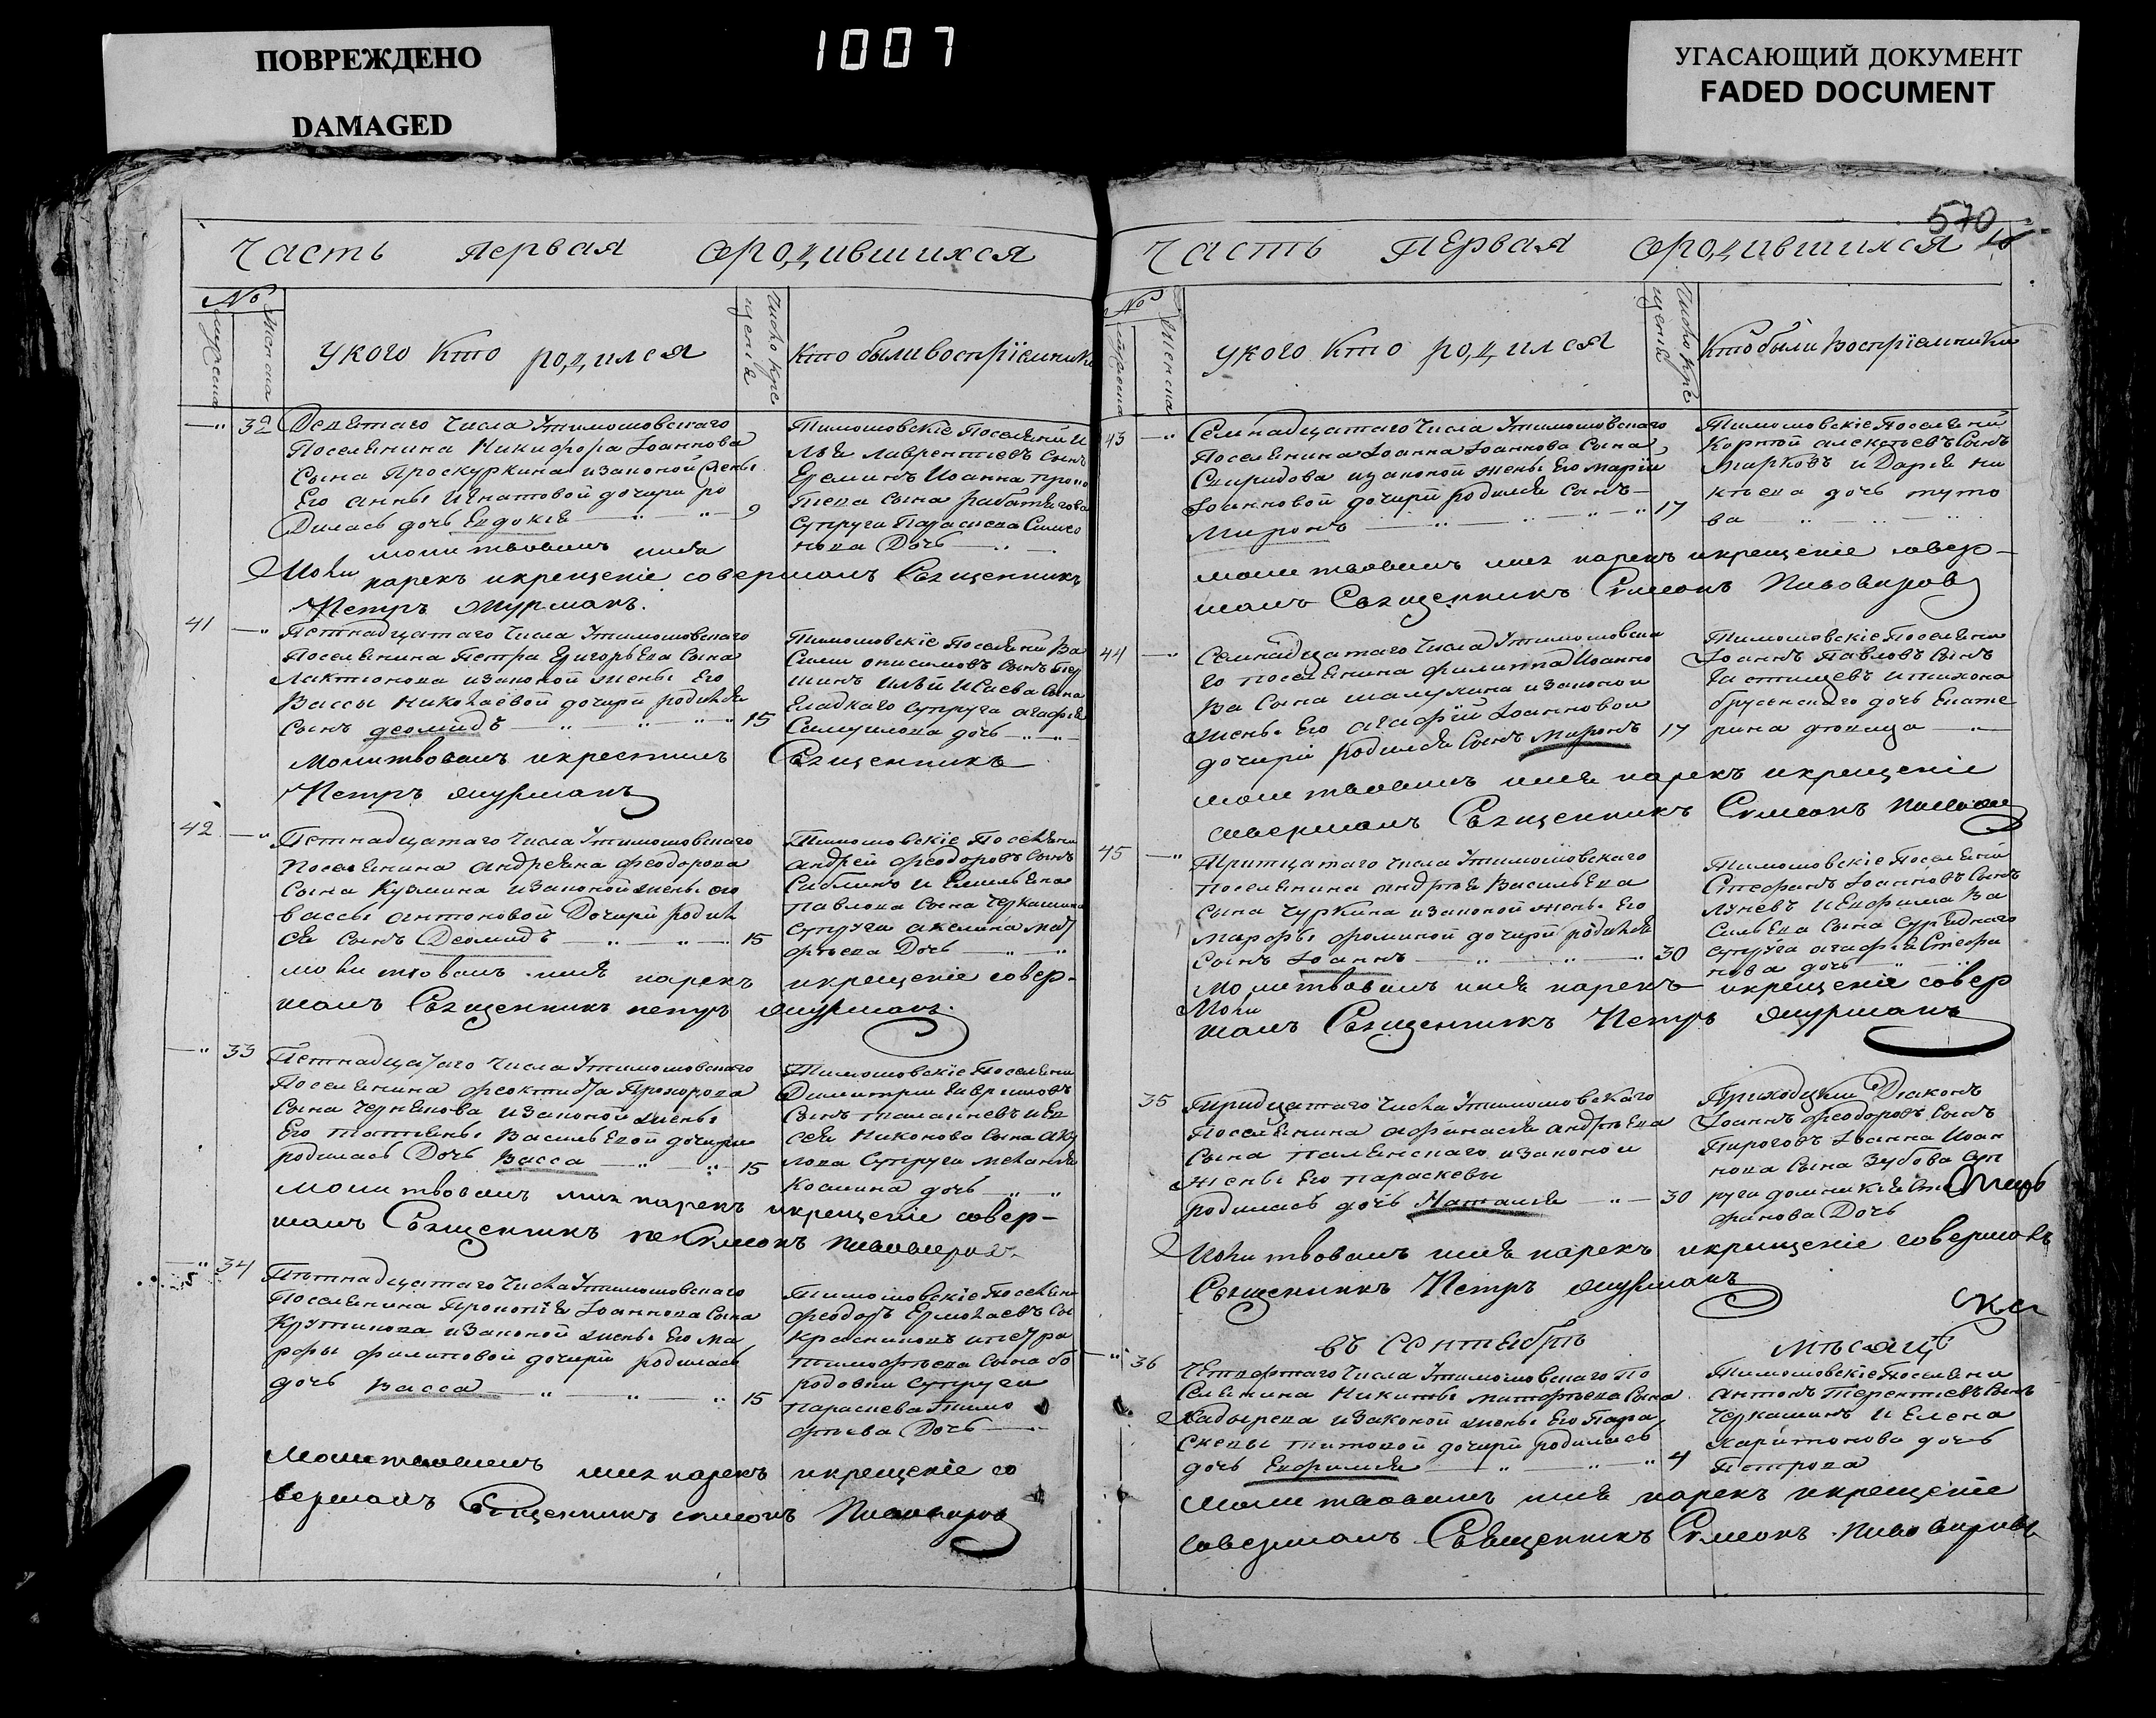 ПОВРЕЖДЕНО
DAMAGED
1007
УГАСАЮЩИЙ ДОКУМЕНТ
FADED DOCUMENT
Часть первая ородившихся
№
мужеска
женска
укого кто родился
Число кре
щенія
кто были воспріемники
32
Девятаго Числа Утимошовскаго
Поселянина Никифора Іоаннова
Сына Проскуркина изаконой жены
Его анны Игнатовой дочири ро
Дилась дочь Евдокія 9
Тимошовскіе Поселяни И
лья лаврентіевъ сынъ
Ереминъ Иоанна
супруга Параскева Симео
нова Дочь
молитвовалъ имя
нарекъ икрещеніе совершалъ Священникъ
Петръ
41
Петнадцатаго Числа Утимошовскаго
Поселянина Петра Григорьева Сына
Лактионова изаконой жены Его
Вассы Николаевой дочири родился
сынъ деомидъ 15
Тимошовскіе Поселяни Ва
Силий онисимовъ сынъ
Илѣи Исаева Сына
Гладкаго супруга агафія
Самуилова дочь
Молитвовалъ икрестилъ Священникъ
Петръ
42
Петнадцатаго Числа Утимошовскаго
поселянина андреяна феодорова
сына Кузмина изаконой жены его
вассы антоновой Дочири родил
ся сынъ Деомидъ 15
Тимошовскіе Поселяни
андрей феодоровъ сынъ
Сиблинъ и Емильяна
Павлова сына черкашина
супруга акилина мат
фьева Дочь
молитвовалъ имя нарекъ икрещеніе совер-
шалъ Священникъ петръ
33
Петнадцатаго Числа Утимошовскаго
Поселянина феоктиста Прохорова
Сына Черненова изаконой жены
Его татіяны Васильевой дочири
родилась Дочь Васса 15
Тимошовскіе Поселяни
Димитрій Гавриловъ
Сынъ
сея Никонова Сына аку
лова Супруга меланія
Козмина дочь
молитвовалъ имя нарекъ икрещеніе совер-
шалъ Священникъ Симеонъ Пивоваровъ
34
Пятнадцатаго Числа Утимошовскаго
Поселянина Прокопія Іоаннова Сына
Крутикова изаконой жены Его Ма
рфы филиповой дочири родилась
дочь Васса 15
Тимошовскіе Поселяни
феодоръ Ермолаевъ Сы
ипетра
тимофѣева Сына бо
родовки супруга
параскева Тимо
фѣева Дочь
Молитвовалъ имя нарекъ икрещеніе со
вершалъ Священникъ симеонъ Пивоваровъ
570
Часть Первая ородившихся
№
мужеска
женска
укого кто родился
Число кре
щенія
кто были воспріемники
43
Семнадцатаго Числа Утимошовскаго
Поселянина Іоанна Іоаннова Сына
Свиридова изаконой жены Его Маріи
Іоанновой дочири родился сынъ
Миронъ 17
Тимошовскіе Поселяни
Корнѣй алексѣевъ Сынъ
Марковъ и Дарія ни
кова дочь тито
ва
молитвовалъ имя нарекъ икрещеніе совер-
шалъ Священникъ Симеонъ Пивоваровъ
44
Семнадцатаго Числа Утимошовска
го поселянина филиппа Иоанно
ва Сына шалухина изаконой
жены Его агафіи Іоанновой
дочири родился сынъ миронъ 17
Тимошовскіе Поселяни
Іоаннъ Павловъ Сынъ
итихона
брусенскаго дочь Екате
рина девица
молитвовалъ имя нарекъ икрещеніе
совершалъ Священникъ Симеонъ
45
Тритцатаго Числа Утимошовскаго
поселянина андрея Васильева
сына Чуркина изаконой жены Его
марфы фоминой дочири родился
сынъ Іоаннъ 30
Тимошовскіе Поселяни
Стефанъ Іоанновъ Сынъ
Луневъ и Евфима Ва
сильева Сына
супруга агафія Стефа
нова дочь
Молитвовалъ имя нарекъ икрещеніе совер
шалъ Священникъ Петръ
35
Тридцатаго Числа Утимошовскаго
Поселянина афанасія андрѣева
Сына изаконой
жены Его параскевы
родилась дочь Наталія 30
Приходскій Діаконъ
Іоаннъ феодоровъ Сынъ
Пироговъ Іоанна Иоан
нова Сына Зубова суп
руга домникія
фанова Дочь
Молитвовалъ имя нарекъ икрещеніе совершалъ
Священникъ Петръ
въ Сентябрѣ Мѣсяцѣ
36
Четвертаго Числа Утимошовскаго По
селянина Никиты матфѣева Сына
Хадырева изаконой жены Его Пара
скевы титовой дочири родилась
дочь Евфимія 4
Тимошовскіе Поселяни
антонъ Терентіевъ Сынъ
Черкашинъ и Елена
Харитонова дочь
Петрова
Молитвовалъ имя нарекъ икрещеніе
совершалъ Священникъ Симеонъ Пивоваровъ